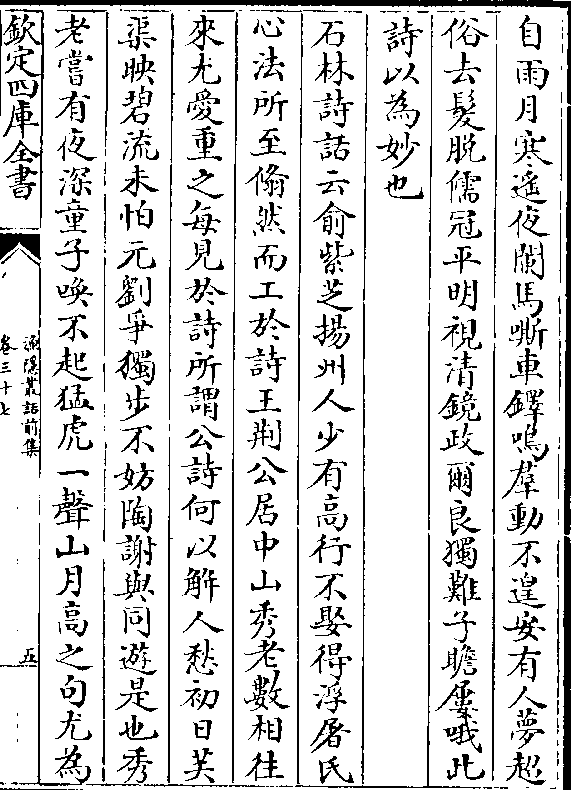 自雨月寒遥夜闌馬嘶車鐸鳴羣動不遑安有人夢超
俗去髮脱儒冠平明視清鏡政爾良獨難子瞻屢哦此
詩以為妙也
石林詩話云俞紫芝揚州人少有高行不娶得浮屠氏
心法所至翛然而工於詩王荆公居中山秀老數相往
來尤愛重之每見於詩所謂公詩何以解人愁初日芙
渠映碧流未怕元劉爭獨步不妨陶謝與同遊是也秀
老嘗有夜深童子喚不起猛虎一聲山月高之句尤為
欽定四庫全書
漁隠叢話前集
卷三十七
五